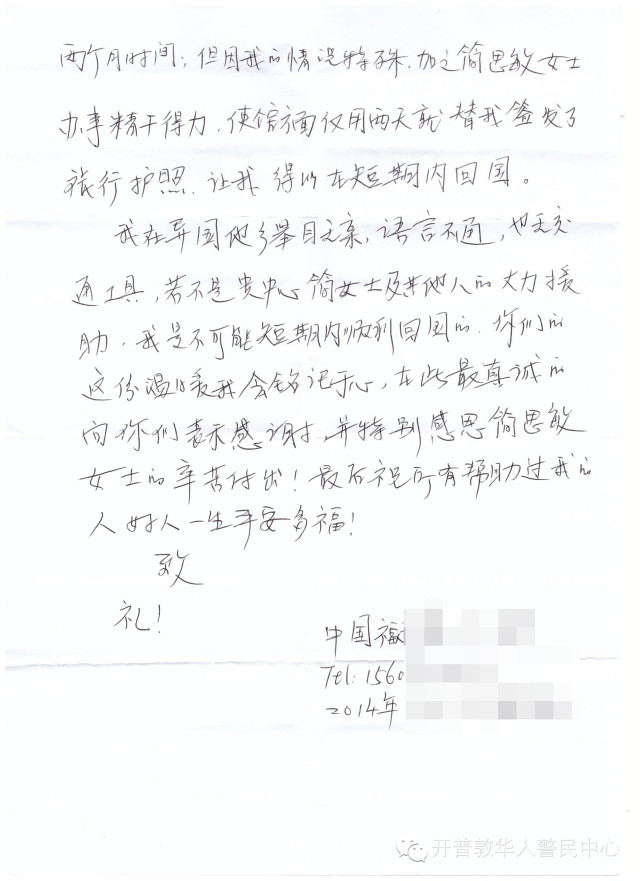 两个月时间；但因我的情况特殊.加之简思敏女士
办事精干得力.使馆方面仅用两天就替我签发了
旅行护照.让我得以在短期内回国。
我在异国他乡举目无亲,语言不通,也无交
通工具,若不是贵中心简女士及其他人的大力援
助.我是不可能短期内顺利回国的.你们的
这份温暖我会铭记于心,在此最真诚的
向你们表示感谢,并特别感恩简思敏
女士的辛苦付出！最后祝所有帮助过我的
人好人一生平安多福！
致
礼！
中国福
Tel: 1560
2014年
开普敦华人警民中心